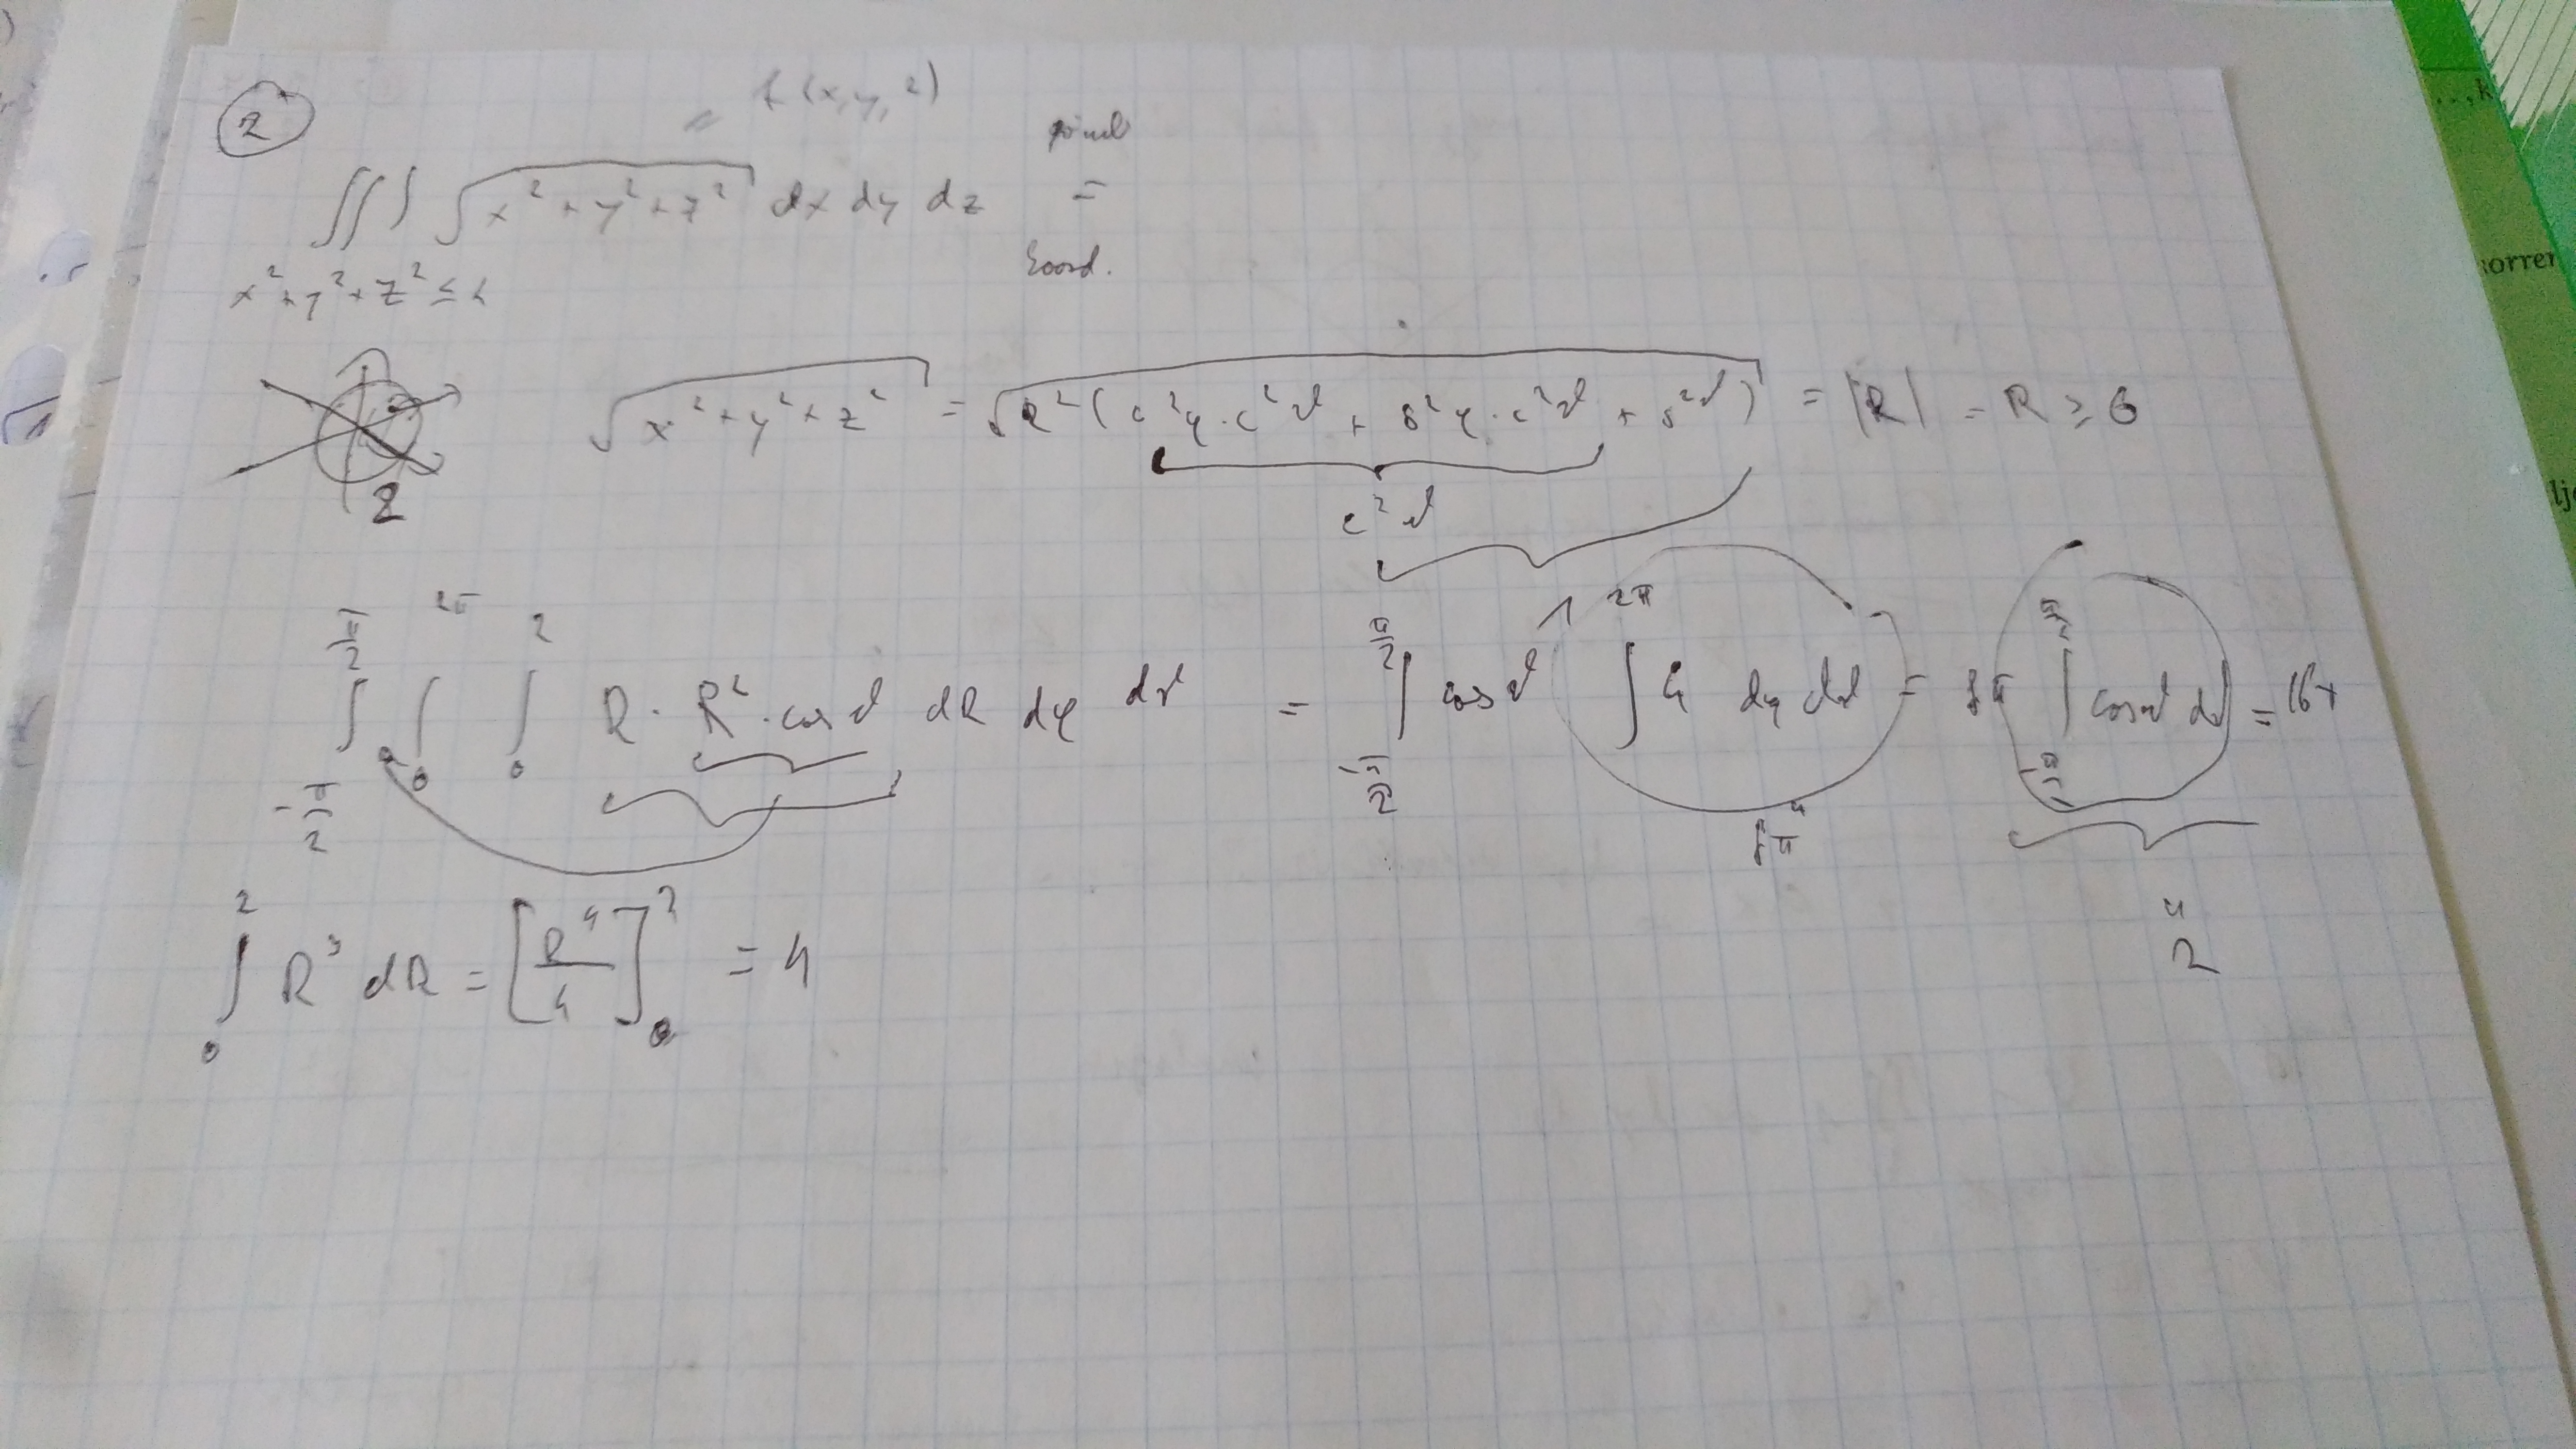 2
= f(x,y,z)
∭ √(x²+y²+z²) dx dy dz =
koord.
x²+y²+z² ≤
√(x²+y²+z²) = √(R²(c²φ·c²ϑ + s²φ·c²ϑ + s²ϑ)) = |R| = R ≥ 0
2
c²ϑ
1
∫_{-π/2}^{π/2} ∫_0^{2π} ∫_0^2 R · R² · cos ϑ dR dφ dϑ = ∫_{-π/2}^{π/2} cos ϑ ∫^{2π} 4 dφ dϑ = 8π ∫_{-π/2}^{π/2} cos ϑ dϑ = 16π
"
8π
∫_0^2 R³ dR = [R⁴/4]_0^2 = 4
"
2
orrer